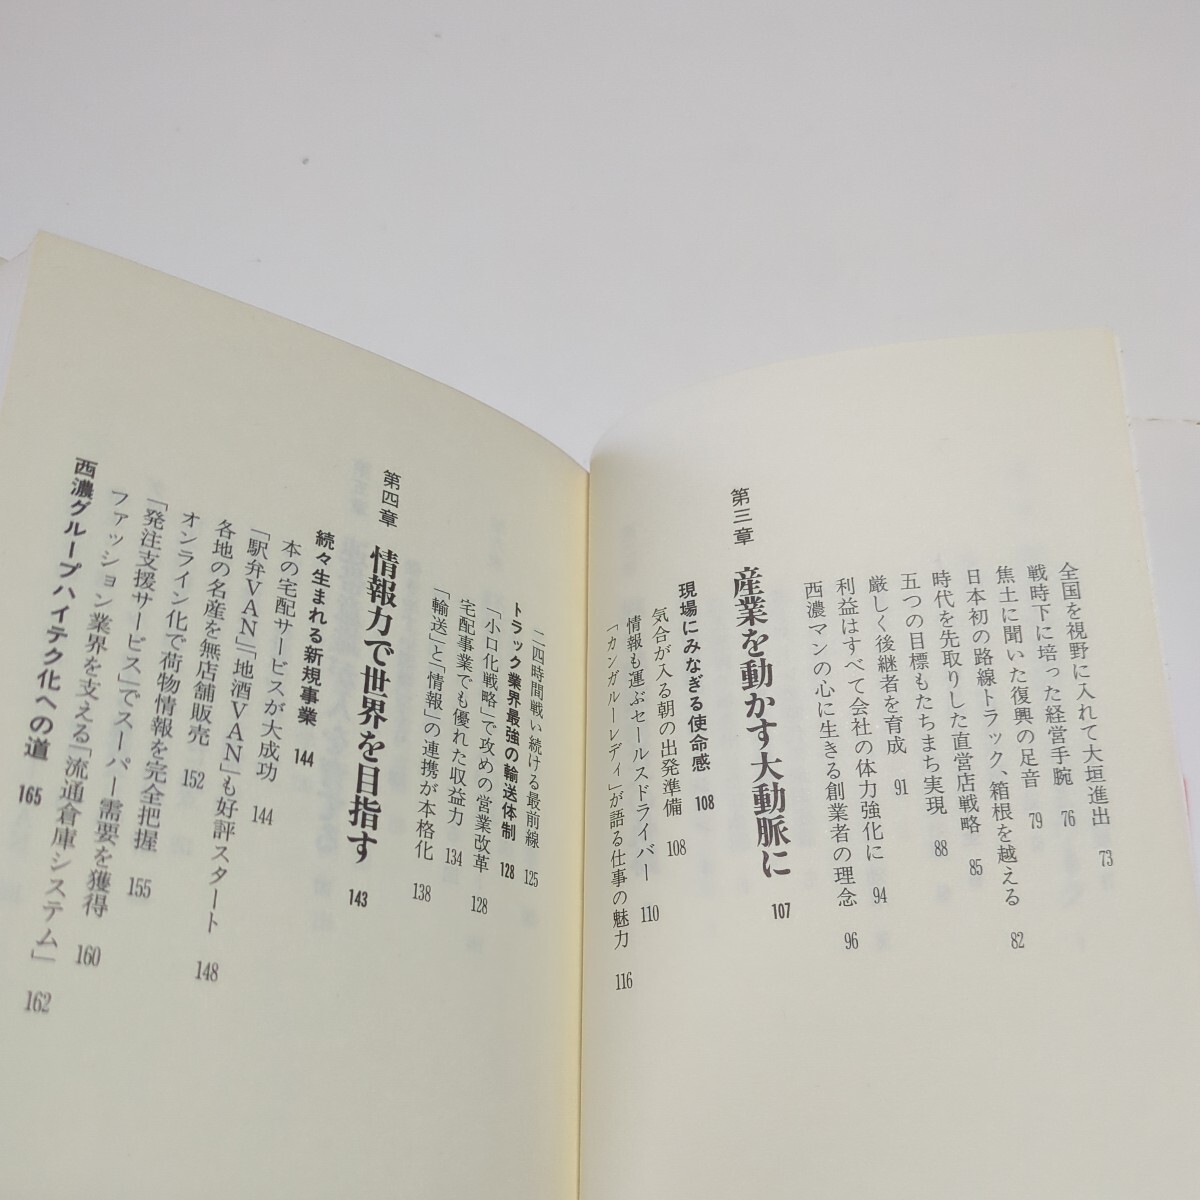 全国を視野に入れて大垣進出 73
戦時下に培った経営手腕 76
焦土に聞いた復興の足音 79
日本初の路線トラック、箱根を越える 82
時代を先取りした直営店戦略 85
五つの目標もたちまち実現 88
厳しく後継者を育成 91
利益はすべて会社の体力強化に 94
西濃マンの心に生きる創業者の理念 96
第三章 産業を動かす大動脈に 107
現場にみなぎる使命感 108
気合が入る朝の出発準備 108
情報も運ぶセールスドライバー 110
「カンガルーレディ」が語る仕事の魅力 116
二四時間戦い続ける最前線 125
トラック業界最強の輸送体制 128
「小口化戦略」で攻めの営業改革 128
宅配事業でも優れた収益力 134
「輸送」と「情報」の連携が本格化 138
第四章 情報力で世界を目指す 143
続々生まれる新規事業 144
本の宅配サービスが大成功 144
「駅弁VAN」「地酒VAN」も好評スタート 148
各地の名産を無店舗販売 152
オンライン化で荷物情報を完全把握 155
「発注支援サービス」でスーパー需要を獲得 160
ファッション業界を支える「流通倉庫システム」 162
西濃グループハイテク化への道 165